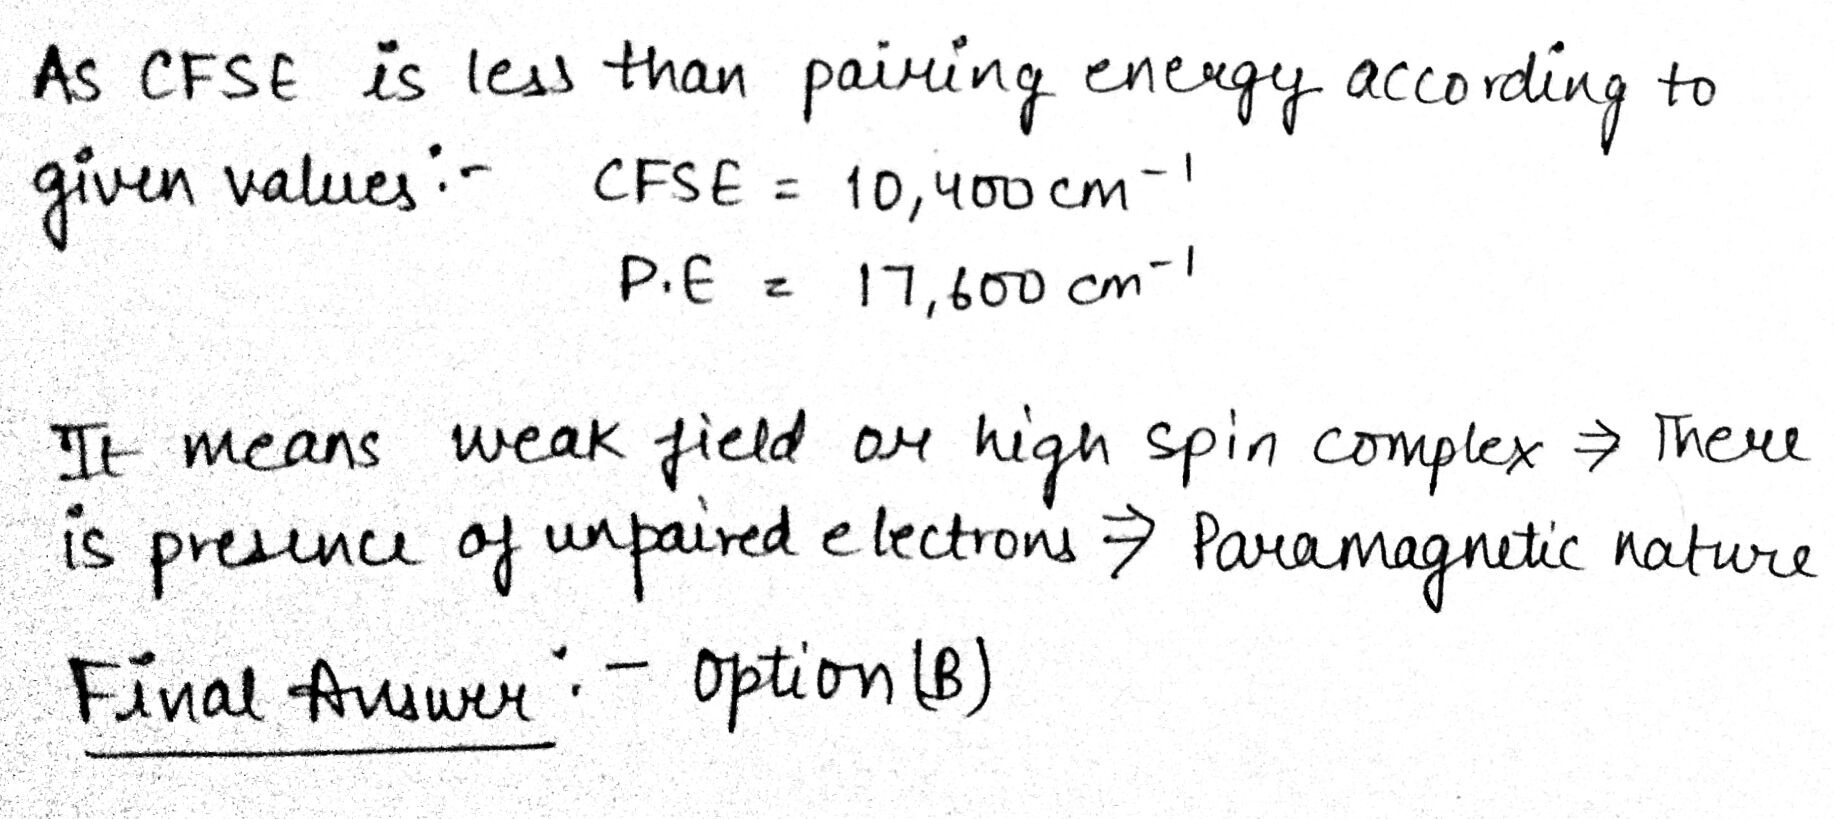 As CFSE is less than pairing energy according to
given values :- CFSE = 10,400 cm⁻¹
P.E = 17,600 cm⁻¹
It means weak field or high spin complex ⇒ There
is presence of unpaired electrons ⇒ Paramagnetic nature
Final Answer :- Option (B)